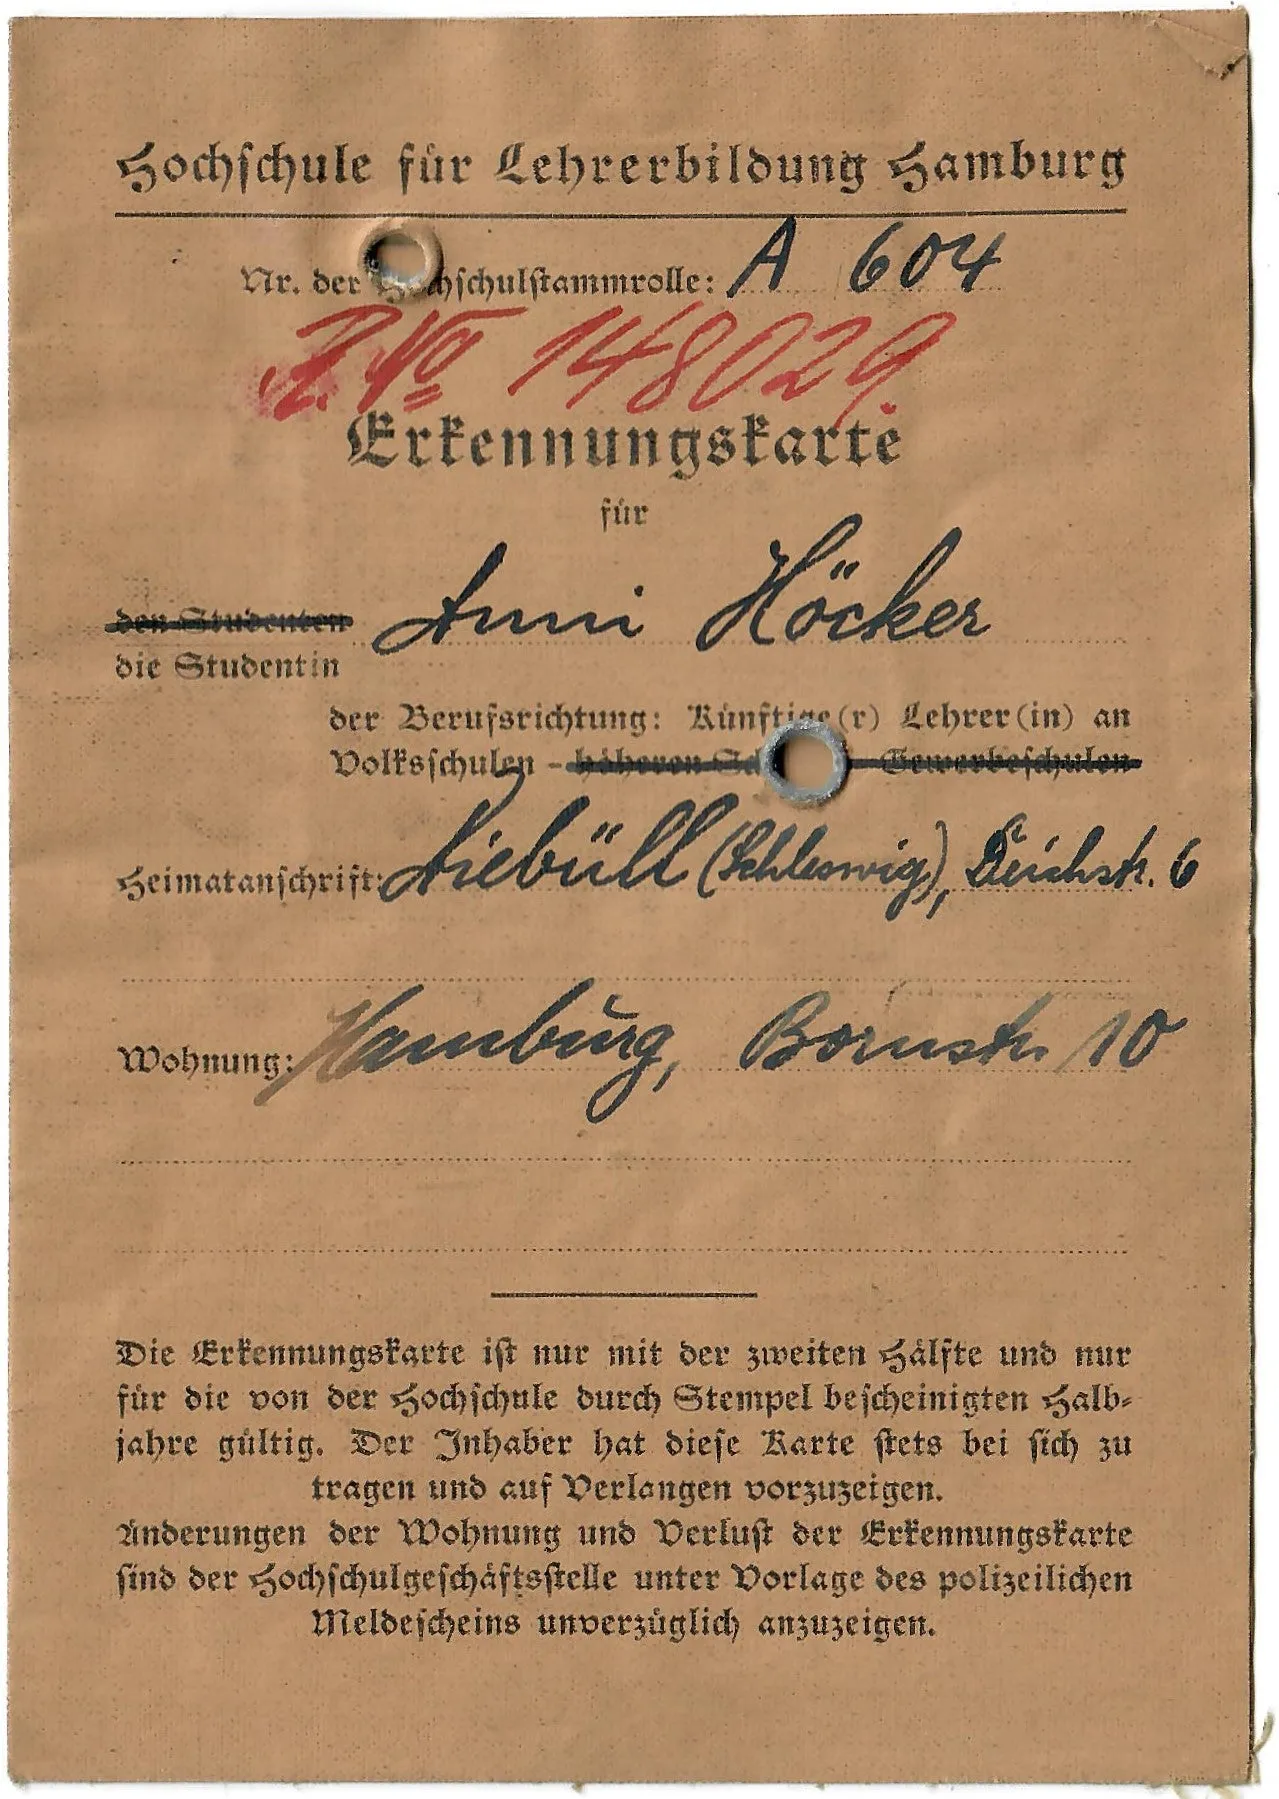 Hochschule für Lehrerbildung Hamburg
Nr. der Hochschulstammrolle: A 604
148029.
Erkennungskarte
für
den Studenten Anni Höcker
die Studentin
der Berufsrichtung: Künftige(r) Lehrer(in) an
Volksschulen - höheren Sch - Gewerbeschulen
Heimatanschrift: Niebüll (Schleswig), Deichstr. 6
Wohnung: Hamburg, Bornstr. 10
Die Erkennungskarte ist nur mit der zweiten Hälfte und nur
für die von der Hochschule durch Stempel bescheinigten Halb-
jahre gültig. Der Inhaber hat diese Karte stets bei sich zu
tragen und auf Verlangen vorzuzeigen.
Änderungen der Wohnung und Verlust der Erkennungskarte
sind der Hochschulgeschäftsstelle unter Vorlage des polizeilichen
Meldescheins unverzüglich anzuzeigen.